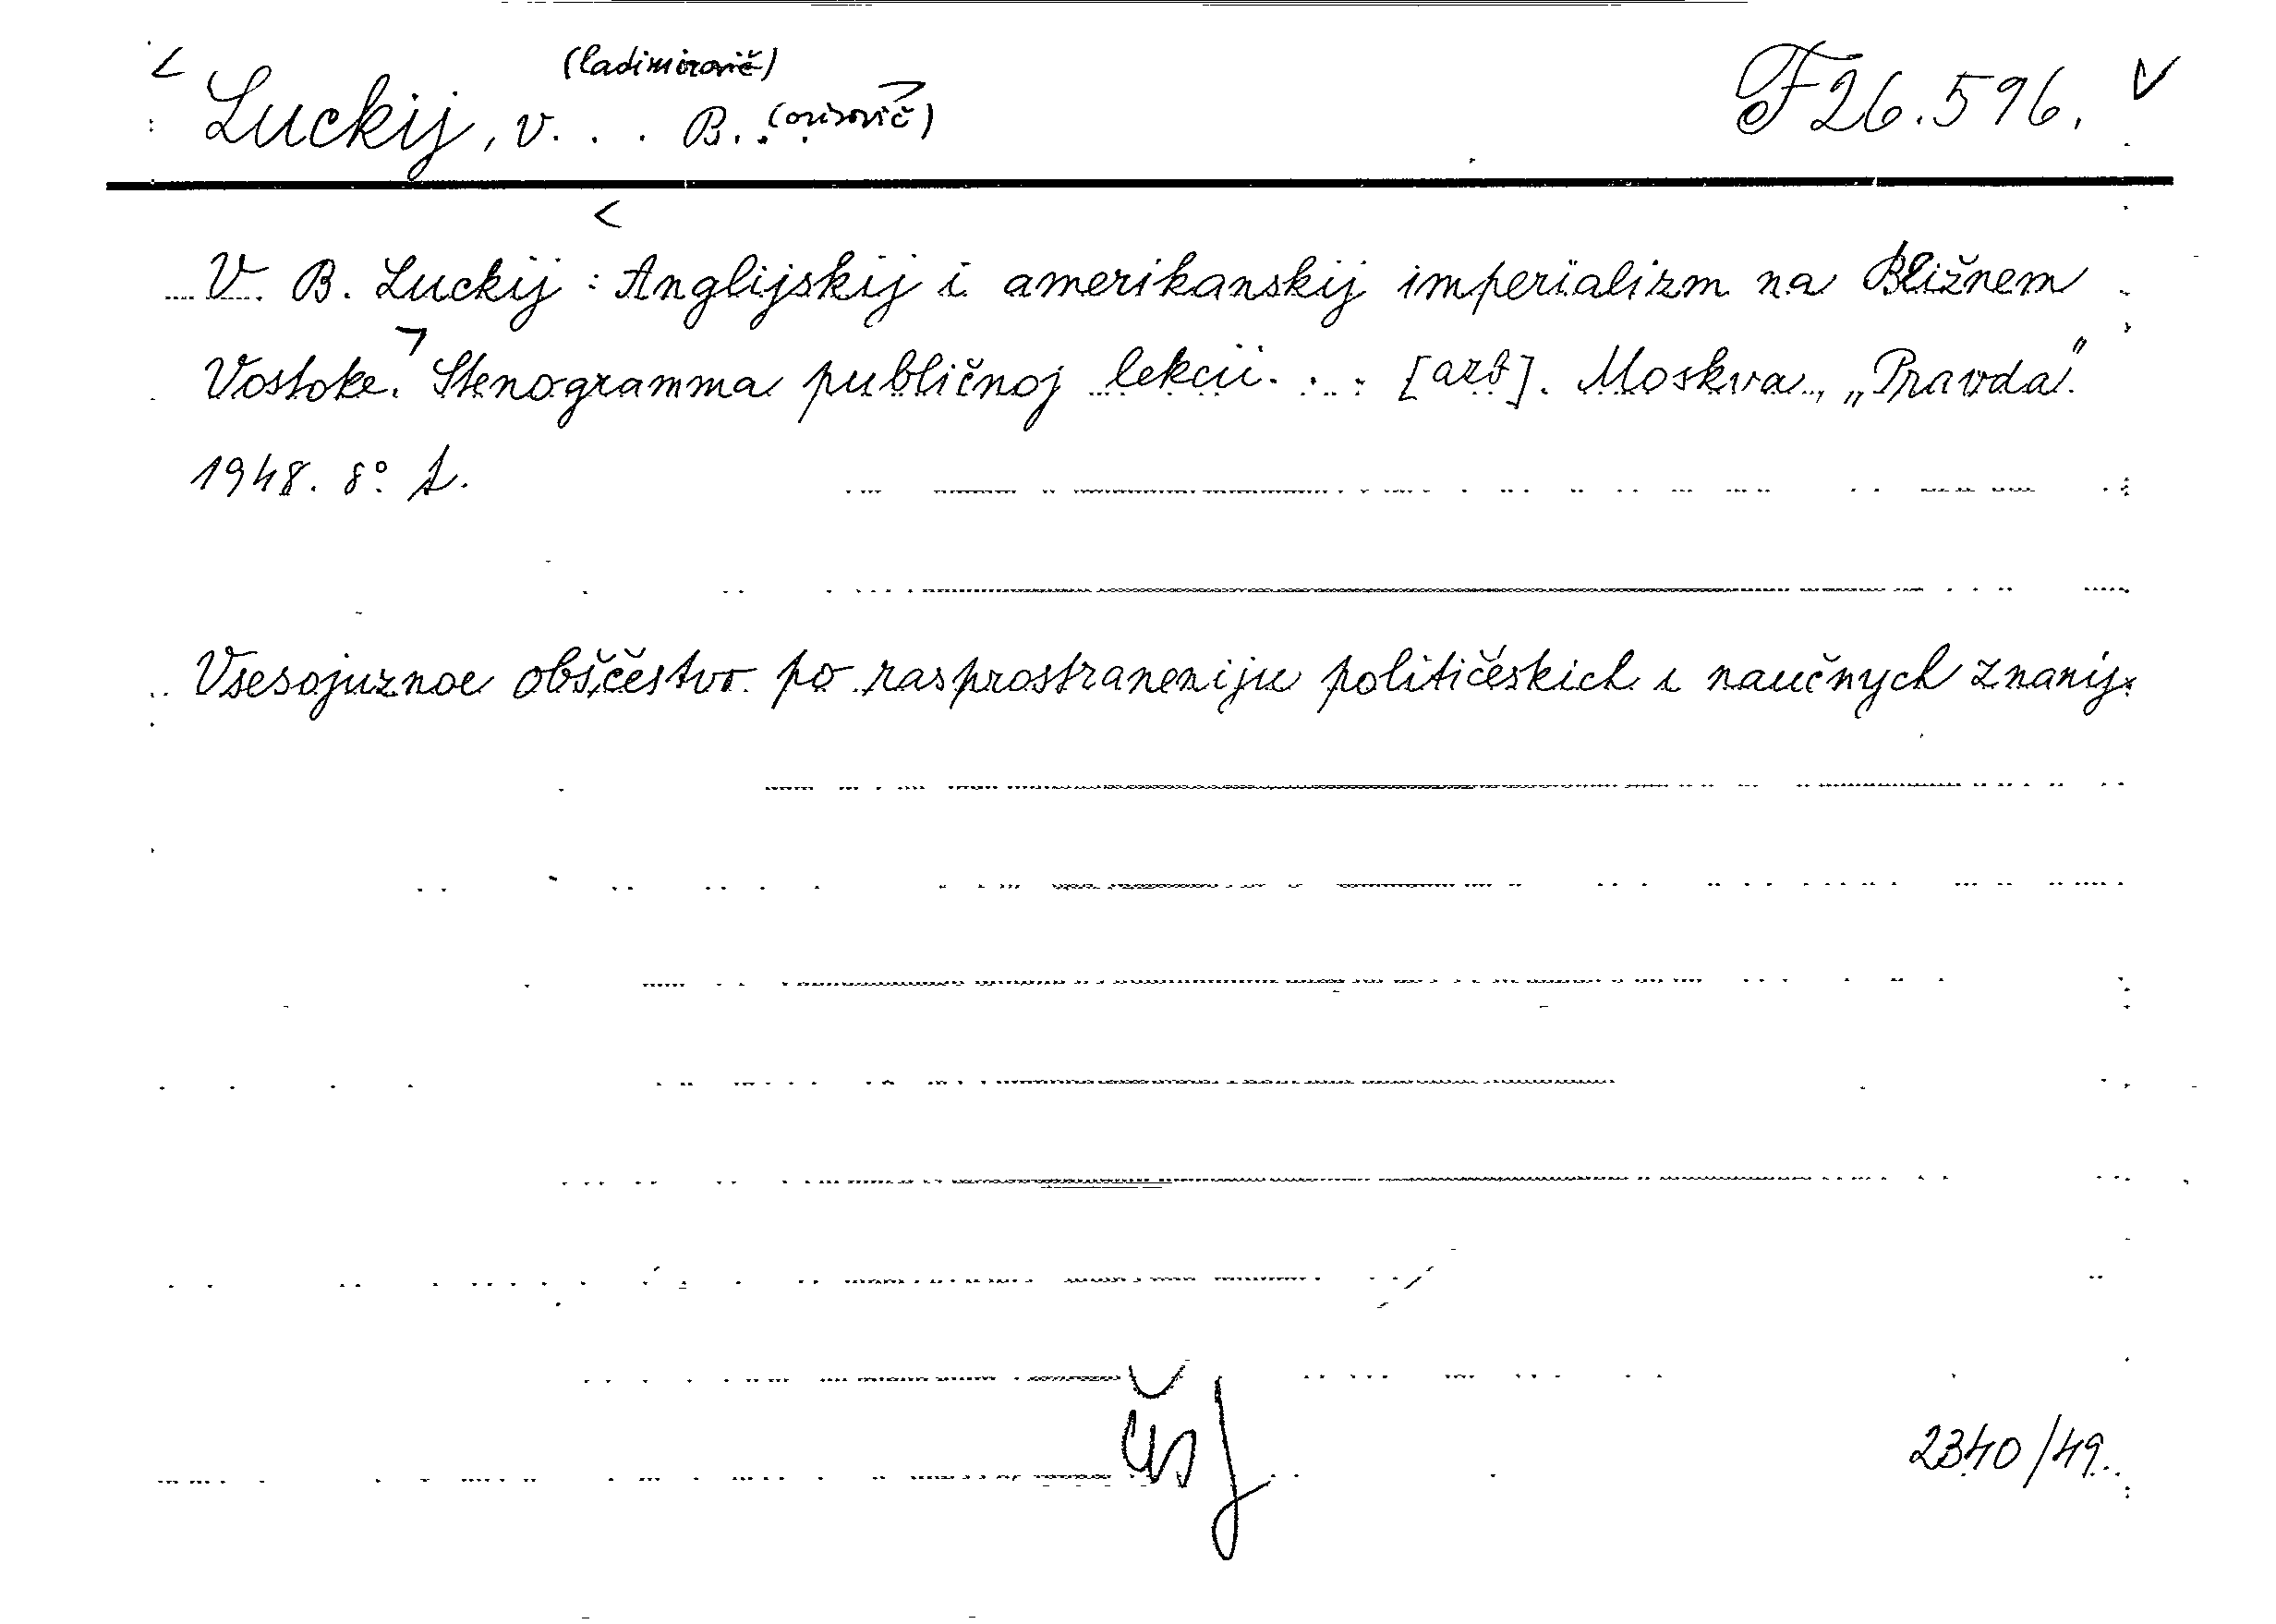 (ladimirovič)
Luckij, V. . . B. (orisovič) F 26.596.
V. B. Luckij: Anglijskij i amerikanskij imperializm na Bližnem
Vostoke. Stenogramma publičnoj lekcii. . . [azb]. Moskva, „Pravda".
1948. 8°.
Vsesojuznoe obščestvo po rasprostraneniju političeskich i naučnych znanij.
2340/49.